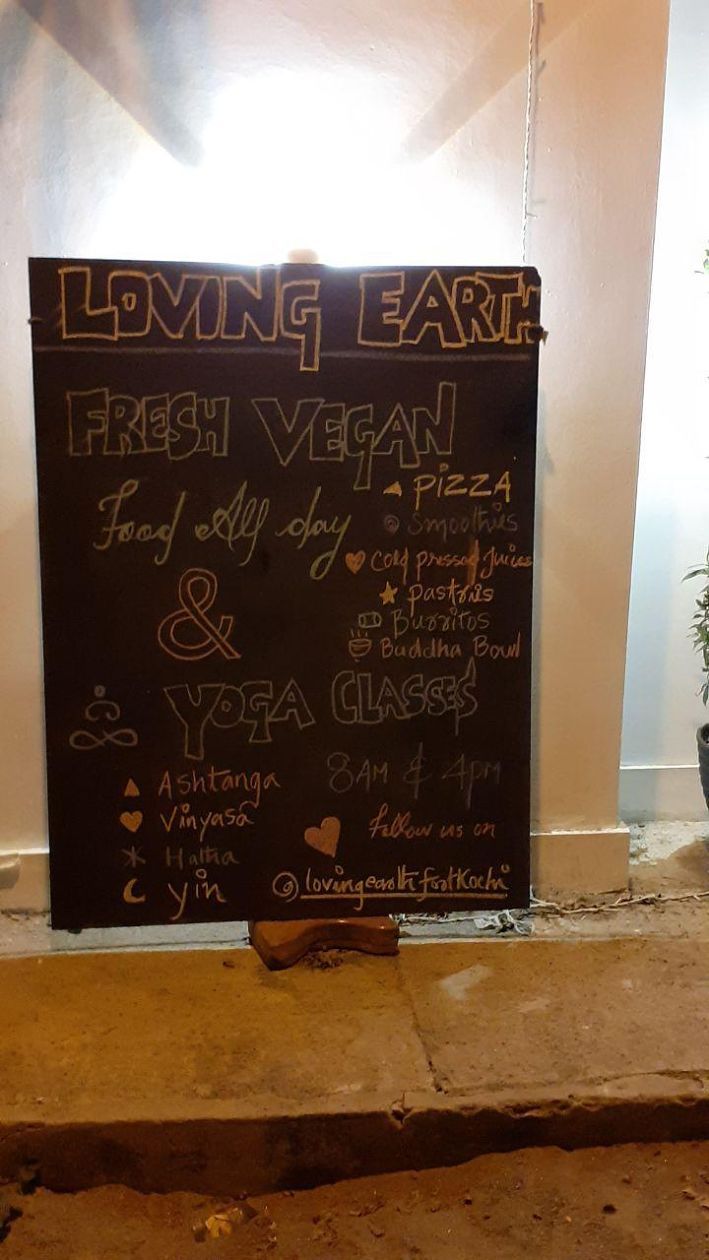 LOVING EARTH
FRESH VEGAN
Food All day
PIZZA
Smoothies
Cold pressed Juices
Pastries
Burritos
Buddha Bowl
&
YOGA CLASSES
8AM & 4PM
Ashtanga
Vinyasa
Hatha
yin
Follow us on
@lovingearthfortkochi